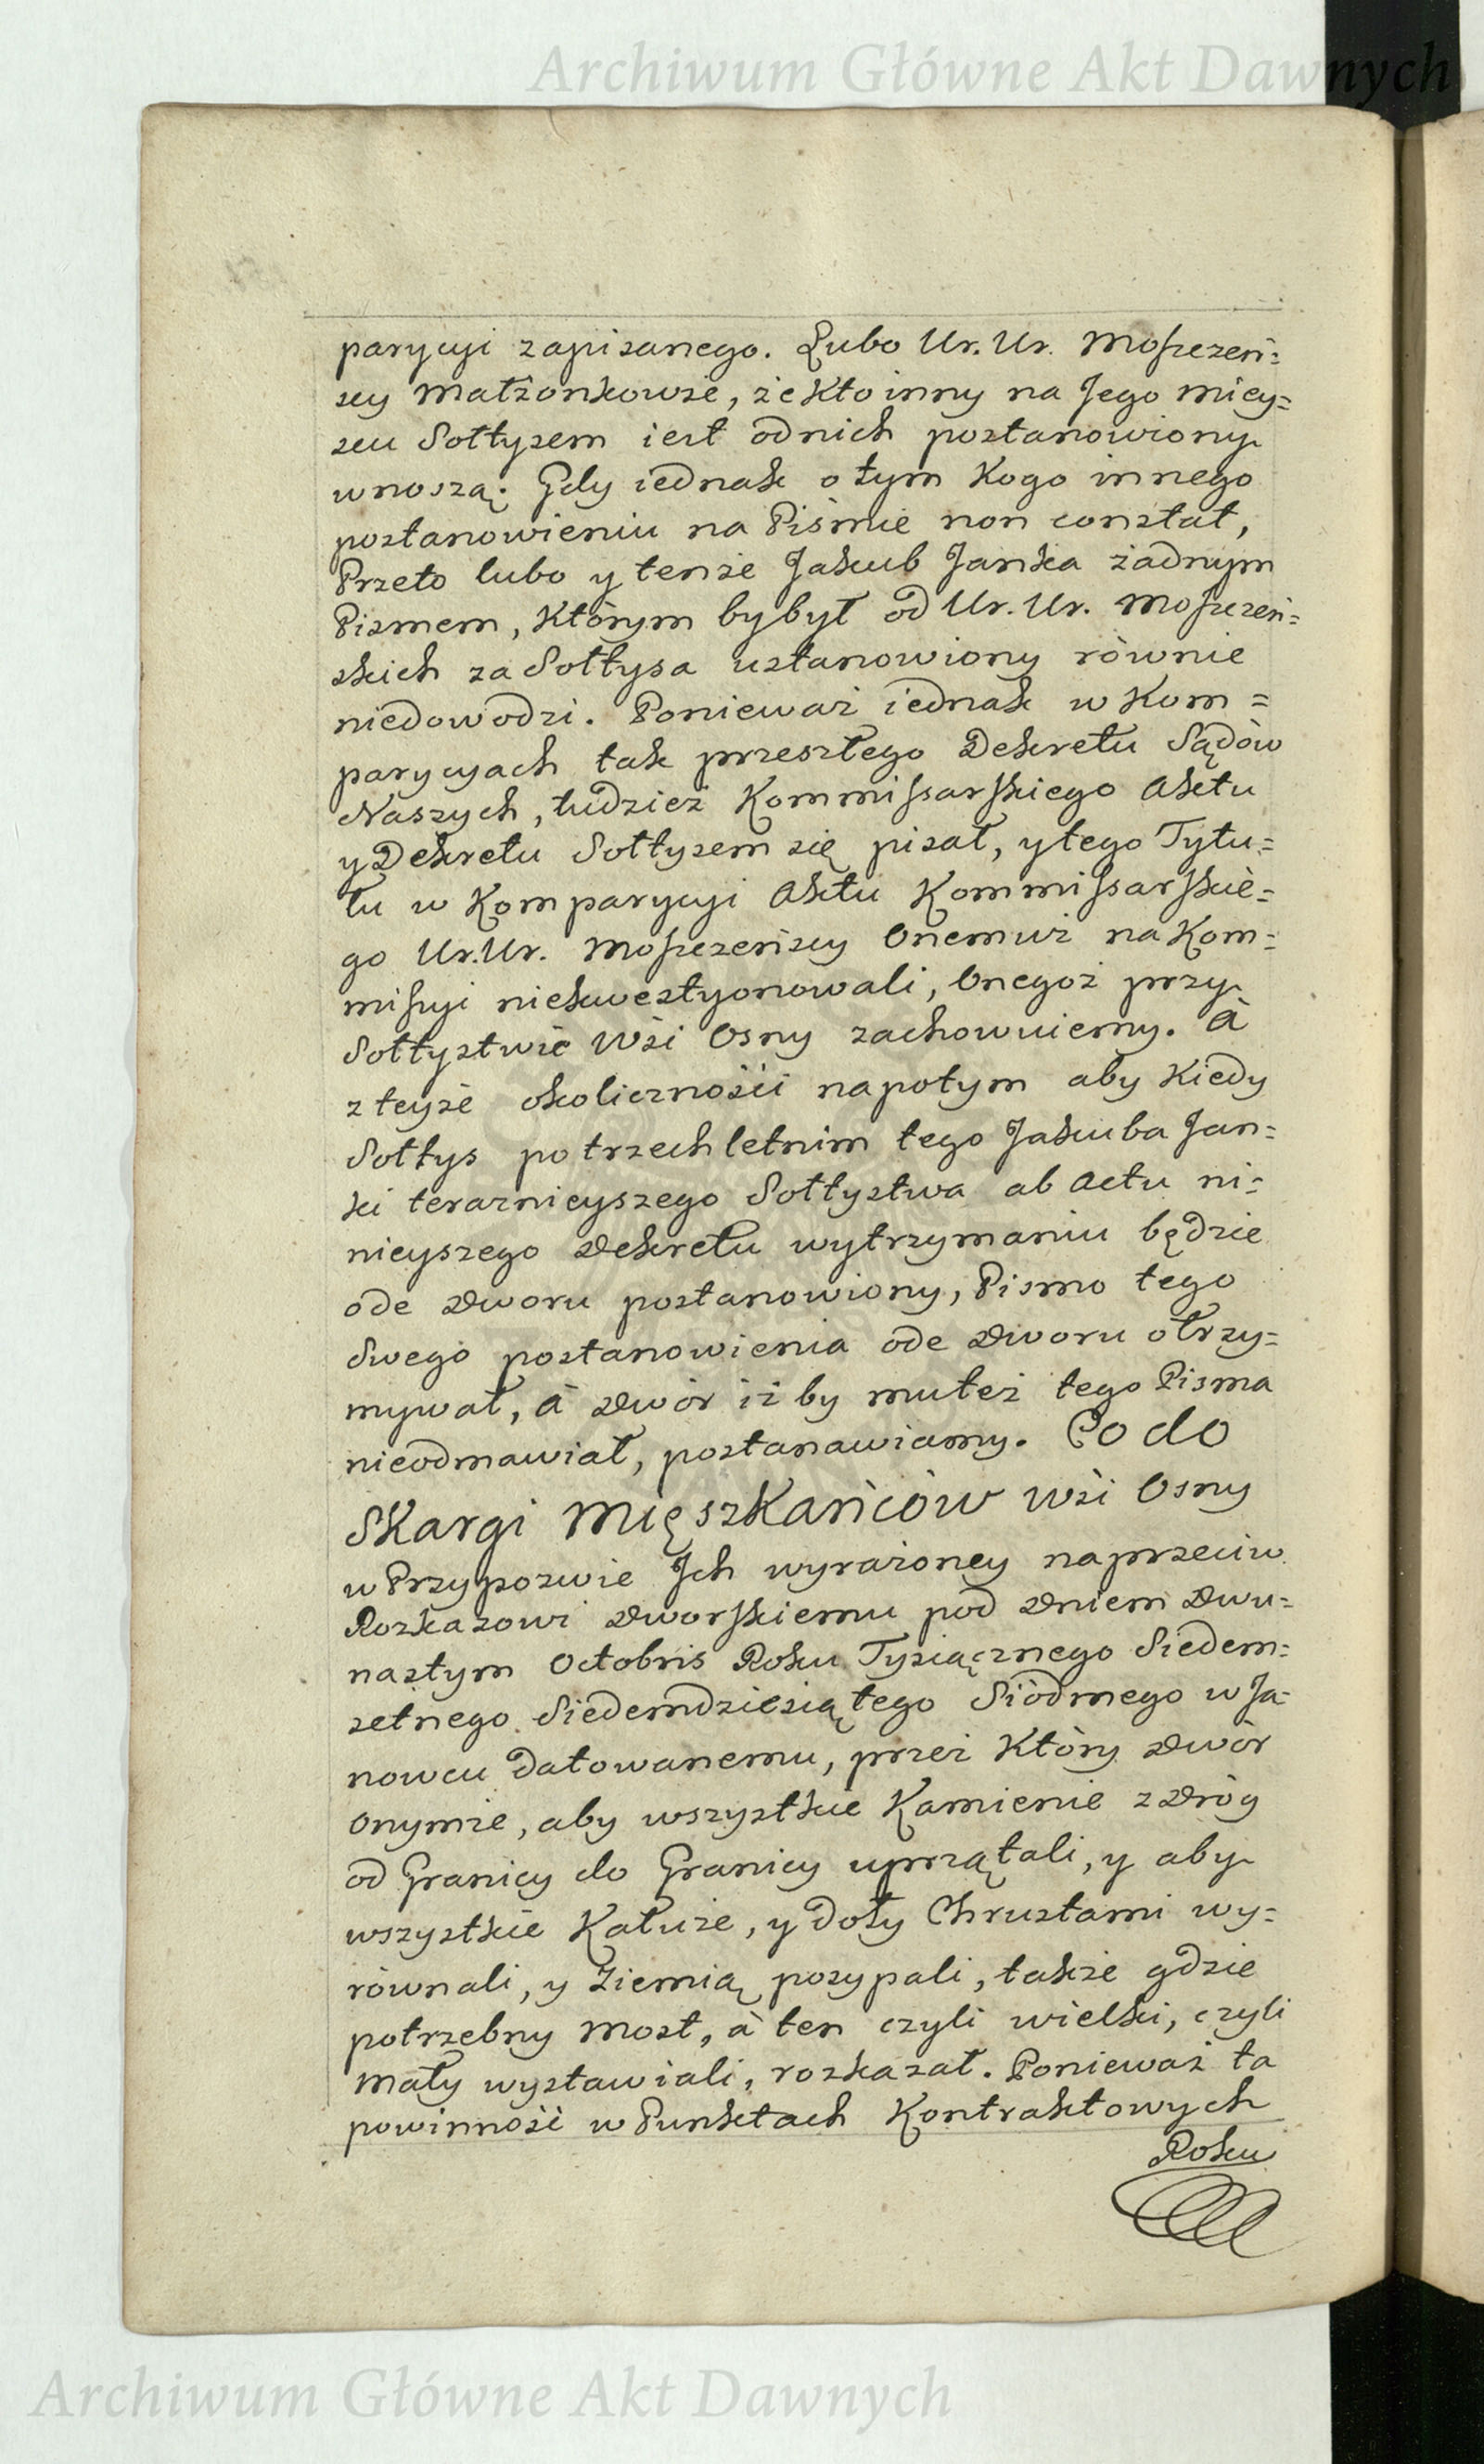 Archiwum Główne Akt Dawnych
parycyi zapisanego. Lubo Ur. Ur. Moszczeń=
scy Małżonkowie, że kto inny na Jego miey=
scu Sołtysem iest od nich postanowiony
wnoszą. Gdy iednak o tym Kogo innego
postanowieniu na Piśmie non constat,
Przeto lubo y tenże Jakub Janka żadnym
Pismem, Którym by był od Ur. Ur. Moszczeń=
skich za Sołtysa ustanowiony równie
niedowodzi. Ponieważ iednak w Kom=
parycyach tak przeszłego Dekretu Sądów
Naszych, tudzież Kommissarskiego Aktu
y Dekretu Sołtysem się pisał, y tego Tytu=
łu w Komparycyi Aktu Kommissarskie=
go Ur. Ur. Moszczeńscy Onemuż na Kom=
missyi niekwestyonowali, Onegoż przy
Sołtystwie Wsi Osny zachowuiemy. à
z teyże okoliczności napotym aby Kiedy
Sołtys po trzechletnim tego Jakuba Jan=
ki teraznieyszego Sołtystwa ab actu ni=
nieyszego Dekretu wytrzymaniu będzie
ode Dworu postanowiony, Pismo tego
Swego postanowienia ode Dworu otrzy=
mywał, à Dwór iż by mu też tego Pisma
nieodmawiał, postanawiamy. Co do
Skargi Mięszkańców wsi Osny
w Przypozwie Jch wyrażoney naprzeciw
Rozkazowi Dworskiemu pod Dniem Dwu=
nastym Octobris Roku Tysiącznego Siedem=
setnego Siedemdziesiątego Siódmego w Ja=
nowcu Datowanemu, przez Który Dwór
onymże, aby wszystkie Kamienie z Dróg
od Granicy do Granicy uprzątali, y aby
wszystkie Kałuże, y doły Chrustami wy=
równali, y Ziemią posypali, także gdzie
potrzebny Most, à ten czyli wielki, czyli
mały wystawiali, rozkazał. Ponieważ ta
powinność w Punktach Kontraktowych
Roku
Archiwum Główne Akt Dawnych